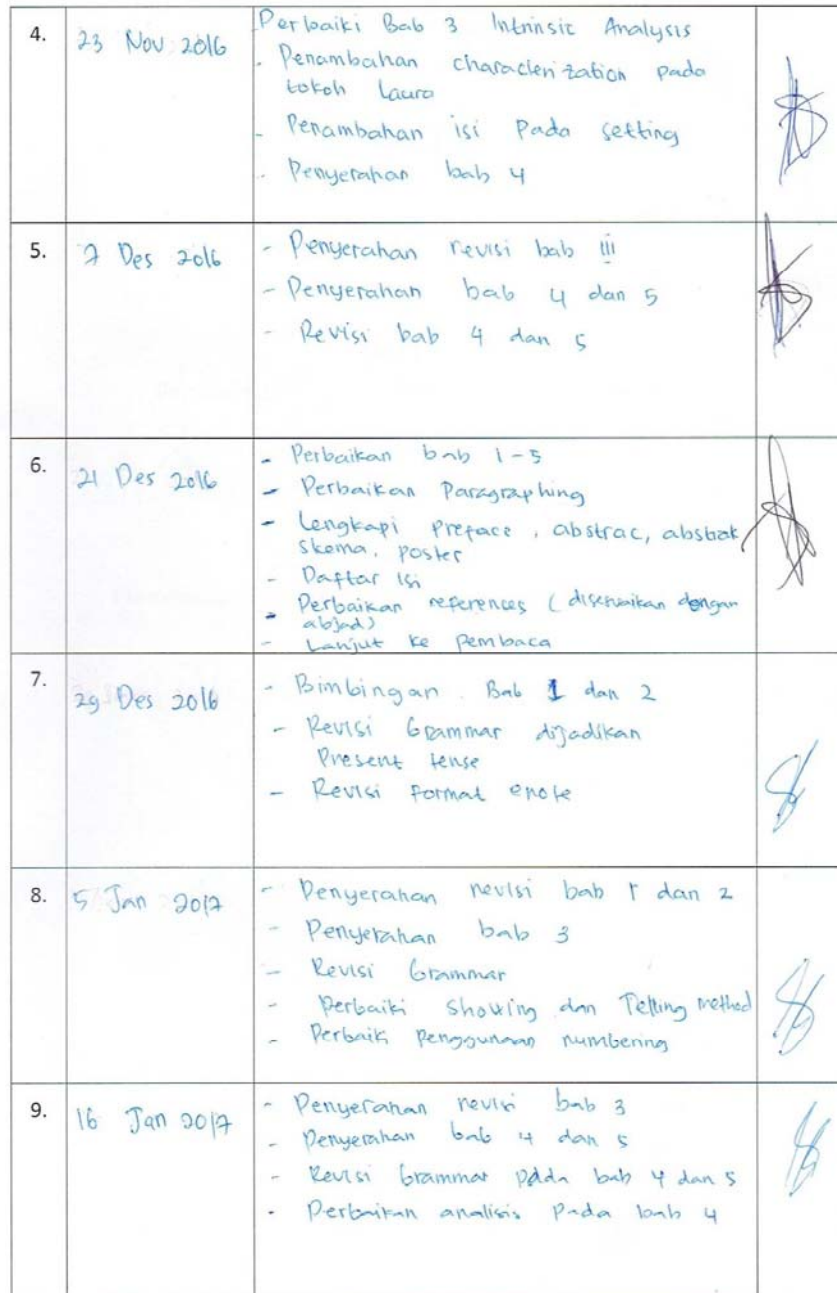 4. 23 Nov 2016 Perbaiki Bab 3 Intrinsic Analysis
- Penambahan characterization pada
tokoh Laura
- Penambahan isi pada setting
- Penyerahan bab 4
5. 7 Des 2016 - Penyerahan revisi bab III
- Penyerahan bab 4 dan 5
- Revisi bab 4 dan 5
6. 21 Des 2016 - Perbaikan bab 1-5
- Perbaikan Paragraphing
- Lengkapi preface, abstrac, abstrak
skema, poster
- Daftar isi
- Perbaikan references (disesuaikan dengan
abjad)
- Lanjut ke pembaca
7. 29 Des 2016 - Bimbingan Bab 1 dan 2
- Revisi Grammar dijadikan
Present tense
- Revisi format
8. 5 Jan 2017 - Penyerahan revisi bab 1 dan 2
- Penyerahan bab 3
- Revisi Grammar
- Perbaiki showing dan Telling method
- Perbaiki penggunaan numbering
9. 16 Jan 2017 - Penyerahan revisi bab 3
- Penyerahan bab 4 dan 5
- Revisi Grammar pada bab 4 dan 5
- Perbaikan analisis pada bab 4